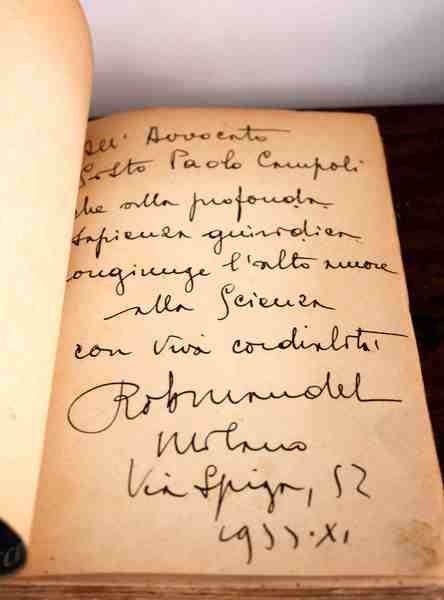 all' Avvocato
Sisto Paolo Campoli
che alla profonda
sapienza giuridica
congiunge l'alto amore
alla Scienza
con viva cordialità
Rob Mandel
Milano
Via Spiga, 52
1933·XI